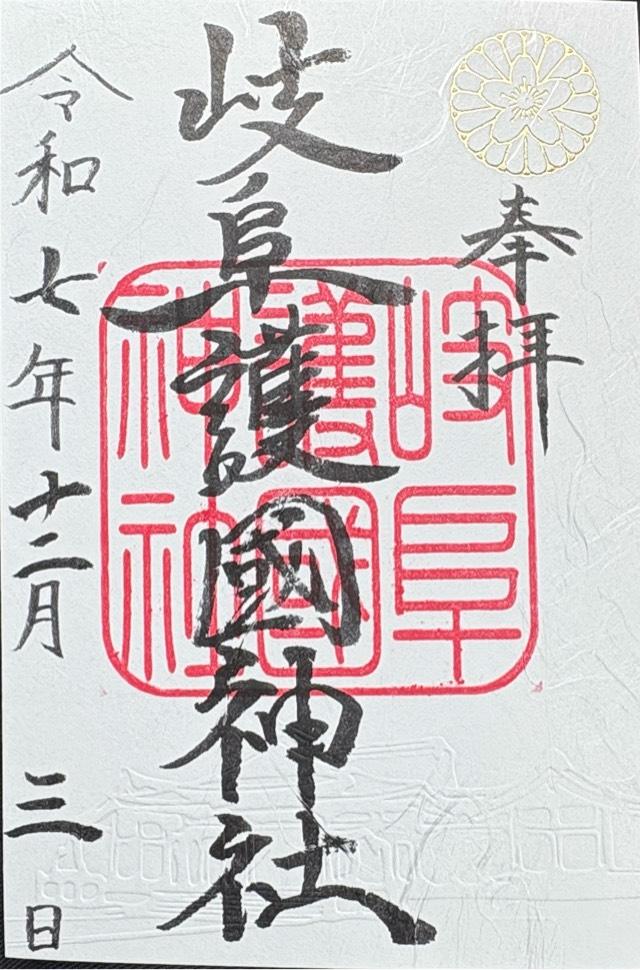 奉拝
岐阜護國神社
岐阜
護國
神社
令和七年十二月三日